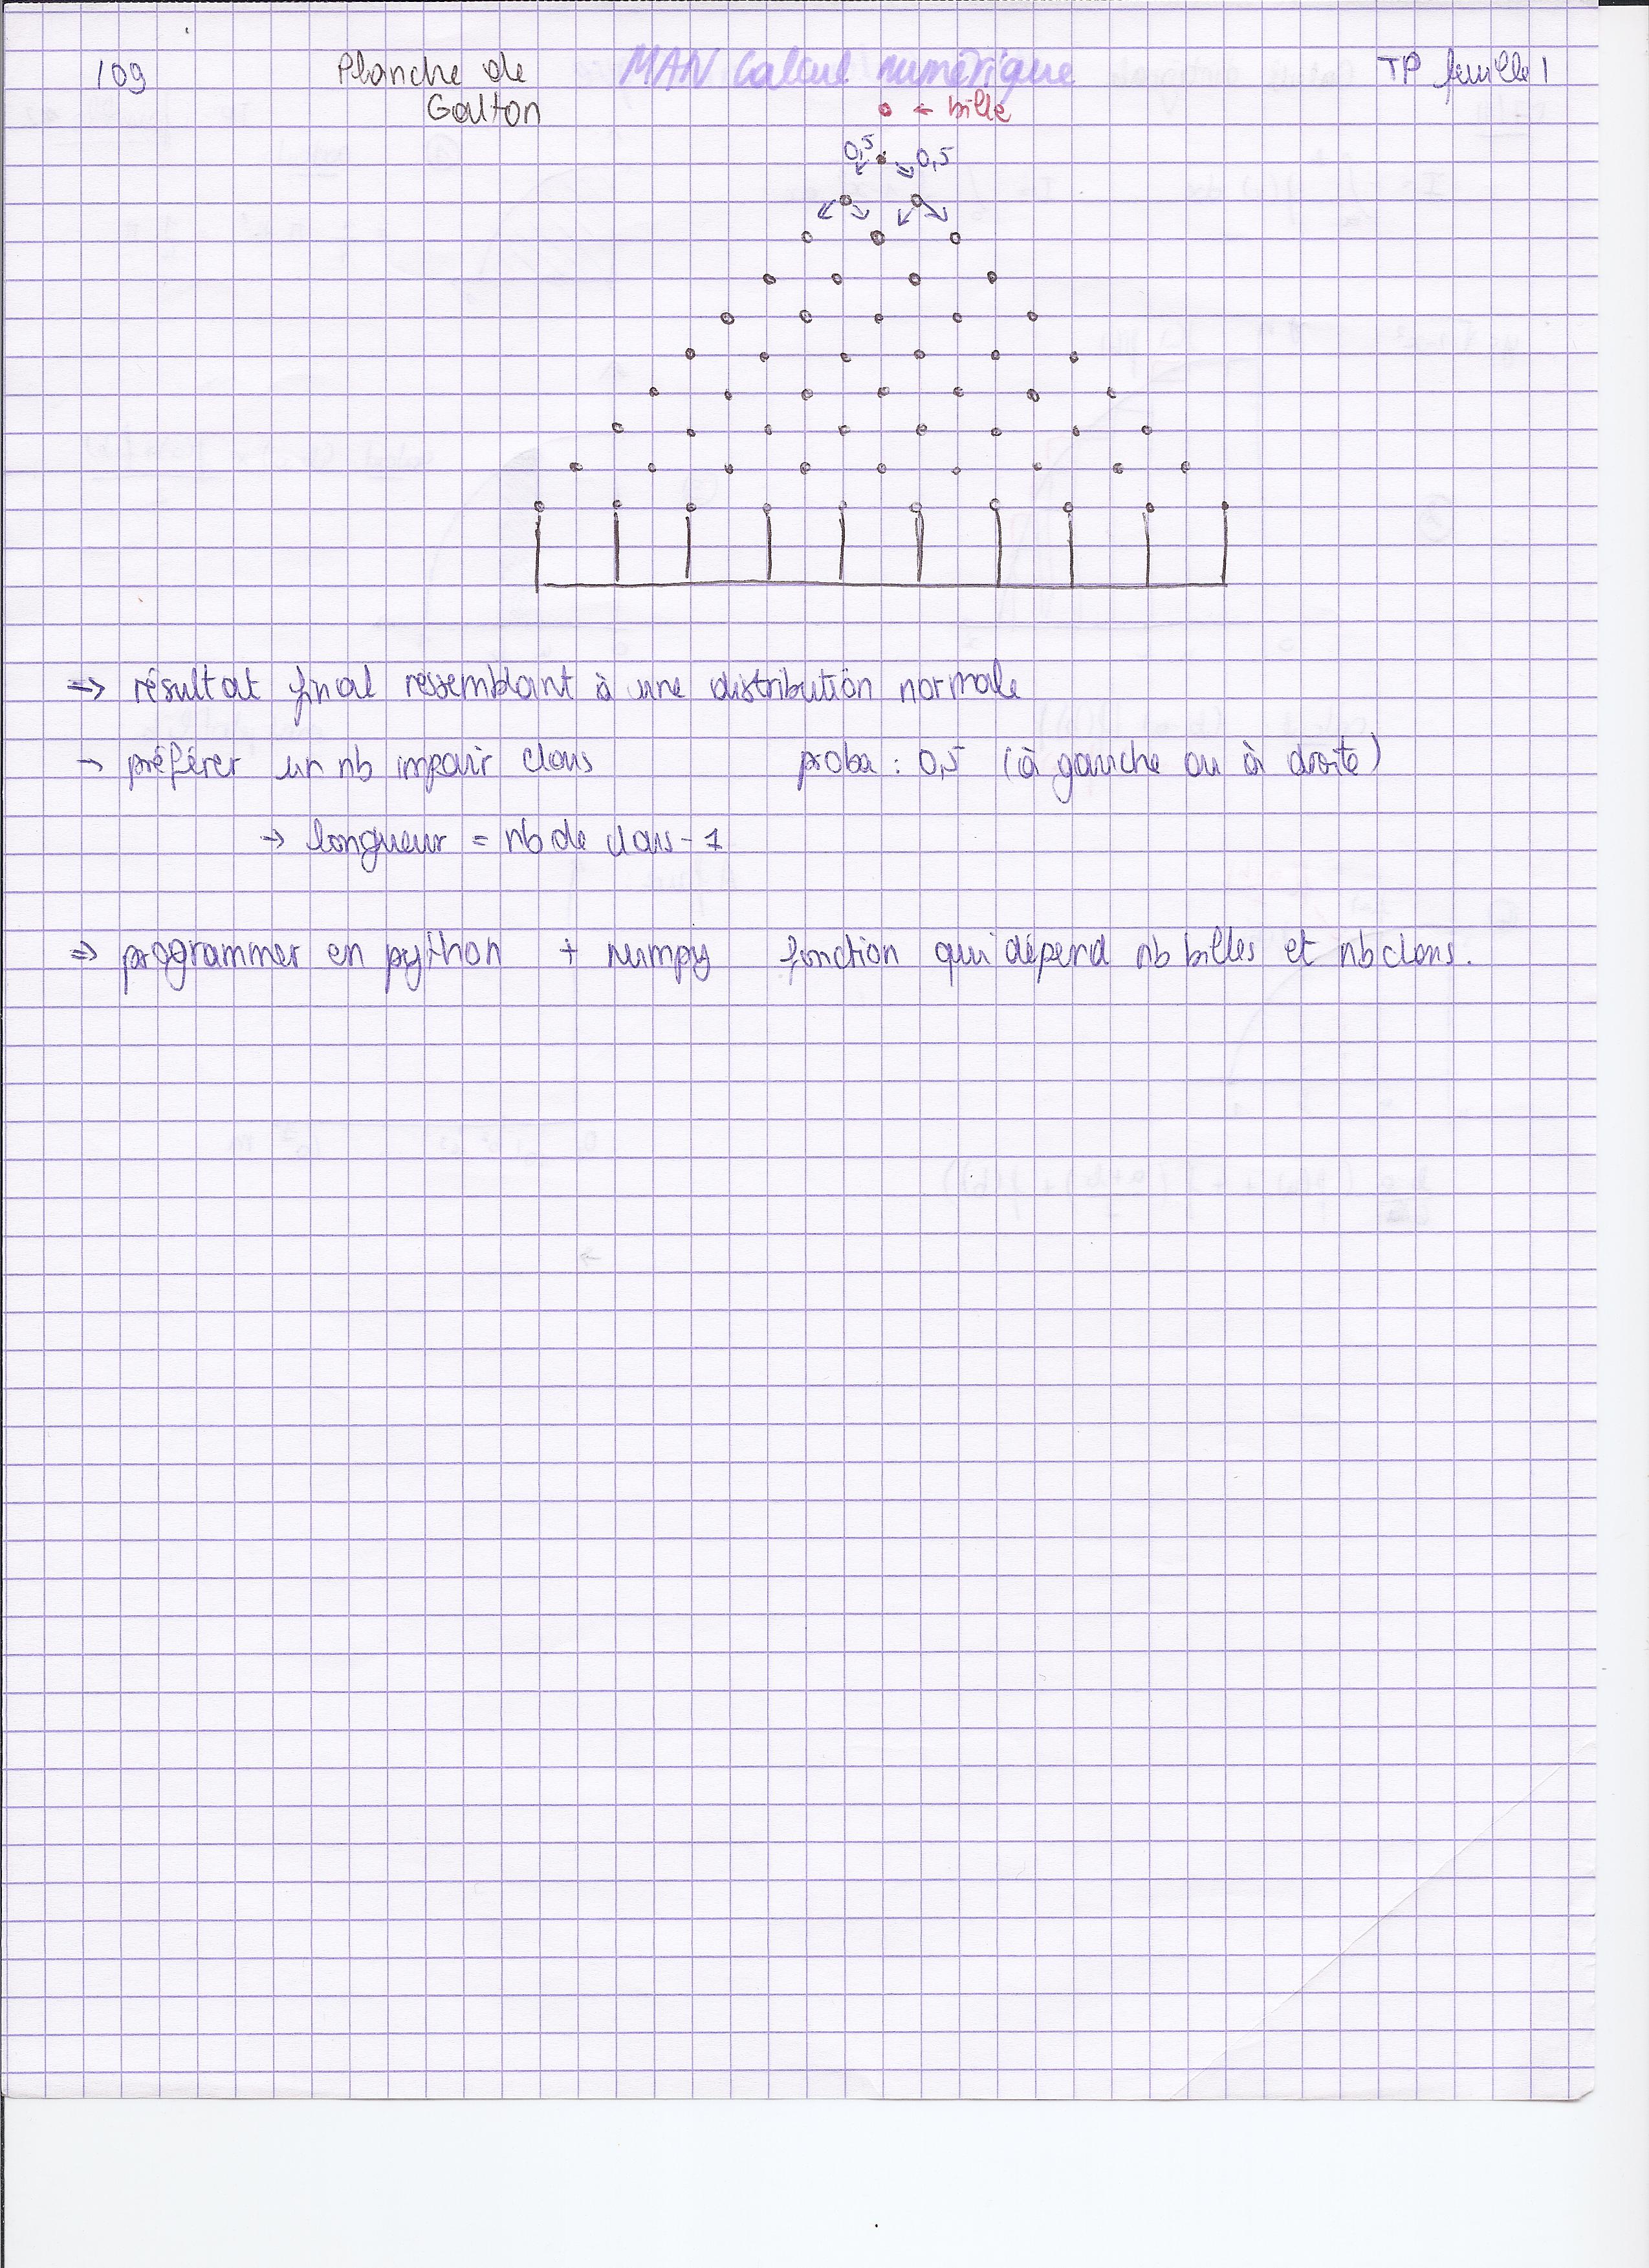 109
Planche de
Galton
MAN Calcul numérique
TP feuille 1
← bille
0,5 0,5
=> résultat final ressemblant à une distribution normale
→ préférer un nb impair clous proba : 0,5 (à gauche ou à droite)
→ longueur = nb de clous - 1
=> programmer en python + numpy fonction qui dépend nb billes et nb clous.